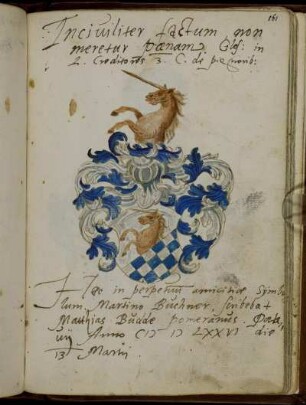 161
Inciuiliter factum non
meretur pœnam Glos: in
L. Creditores 3. C. de pignorib:
Hoc in perpetuu amicitiæ Symbo
lum Martino Büchner scribebat
Matthias Budde pomeranus Pata
uij Anno CIↃ IↃ LXXVI die
13 Martij